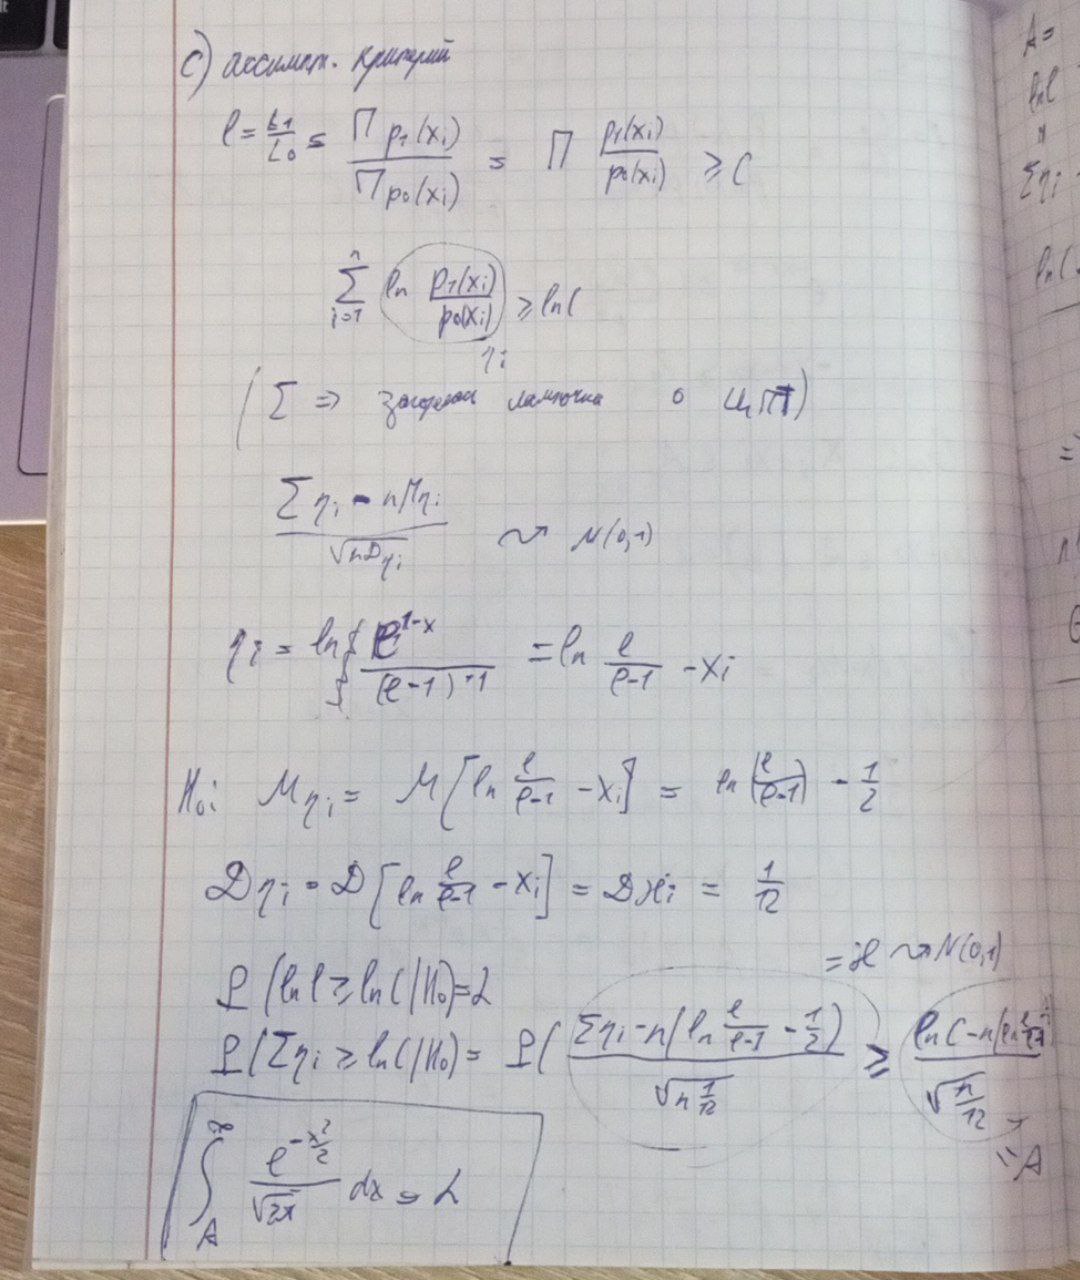 c) ассимпт. критерий
l = L1/L0 = Π p1(xi) / Π p0(xi) = Π p1(xi)/p0(xi) ≥ C
Σ_{i=1}^{n} ln p1(xi)/p0(xi) ≥ ln C
ηi
(Σ => загорелась лампочка о ЦПТ)
(Σ ηi - n Mηi) / √(n Dηi) ⤳ N(0,1)
ηi = ln { e^{1-x} / (e-1)·1 } = ln e/(e-1) - xi
H0: Mηi = M[ln e/(e-1) - xi] = ln(e/(e-1)) - 1/2
Dηi = D[ln e/(e-1) - xi] = Dxi = 1/12
= ℋ ⤳ N(0,1)
P(ln l ≥ ln C | H0) = α
P(Σηi ≥ ln C | H0) = P( (Σηi - n(ln e/(e-1) - 1/2)) / √(n 1/12) ≥ (ln C - n(ln e/(e-1) / √(n/12)
= A
∫_A^∞ e^{-x²/2} / √2π dx = α
A =
ln l
"
Σηi
ln C
=>